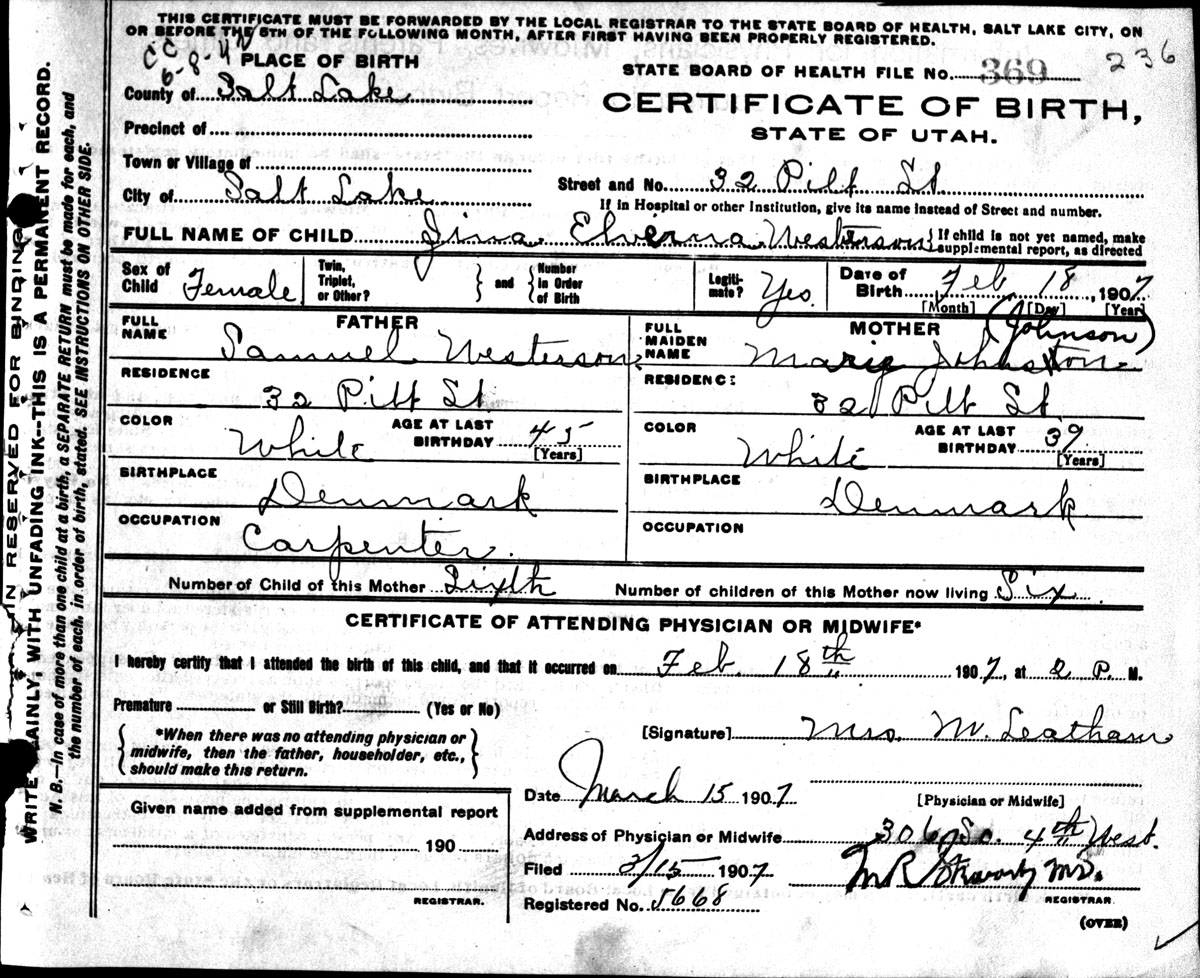 THIS CERTIFICATE MUST BE FORWARDED BY THE LOCAL REGISTRAR TO THE STATE BOARD OF HEALTH, SALT LAKE CITY, ON
OR BEFORE THE 5TH OF THE FOLLOWING MONTH, AFTER FIRST HAVING BEEN PROPERLY REGISTERED.
236
6-8-4
PLACE OF BIRTH
STATE BOARD OF HEALTH FILE NO. 369
County of Salt Lake
CERTIFICATE OF BIRTH,
Precinct of
STATE OF UTAH.
Town or Village of
City of Salt Lake
Street and No. 32 Pitt St
If in Hospital or other Institution, give its name instead of Street and number.
FULL NAME OF CHILD Jina Elverna Westerson
If child is not yet named, make supplemental report, as directed
Sex of Child Female
Twin, Triplet, or Other? and Number in Order of Birth
Legitimate? Yes.
Date of Birth Feb 18, 1907
[Month] [Day] [Year]
FATHER
FULL NAME Samuel Westerson
RESIDENCE 32 Pitt St.
COLOR White
AGE AT LAST BIRTHDAY 45 [Years]
BIRTHPLACE Denmark
OCCUPATION Carpenter.
MOTHER (Johnson)
FULL MAIDEN NAME Marie Johnston
RESIDENCE 32 Pitt St
COLOR White
AGE AT LAST BIRTHDAY 39 [Years]
BIRTHPLACE Denmark
OCCUPATION
Number of Child of this Mother Sixth
Number of children of this Mother now living Six
CERTIFICATE OF ATTENDING PHYSICIAN OR MIDWIFE*
I hereby certify that I attended the birth of this child, and that it occurred on Feb. 18th 1907, at 2 P. M.
Premature or Still Birth? (Yes or No)
*When there was no attending physician or
midwife, then the father, householder, etc.,
should make this return.
[Signature] Mrs. M. Leatham
Date March 15 1907
[Physician or Midwife]
Given name added from supplemental report
190
REGISTRAR.
Address of Physician or Midwife 306 So. 4th West.
Filed 3/15 1907
M R Stewart MD.
REGISTRAR
Registered No. 5668
(OVER)
IN RESERVED FOR BINDING
WRITE PLAINLY, WITH UNFADING INK--THIS IS A PERMANENT RECORD.
N. B.--In case of more than one child at a birth, a SEPARATE RETURN must be made for each, and
the number of each, in order of birth, stated. SEE INSTRUCTIONS ON OTHER SIDE.